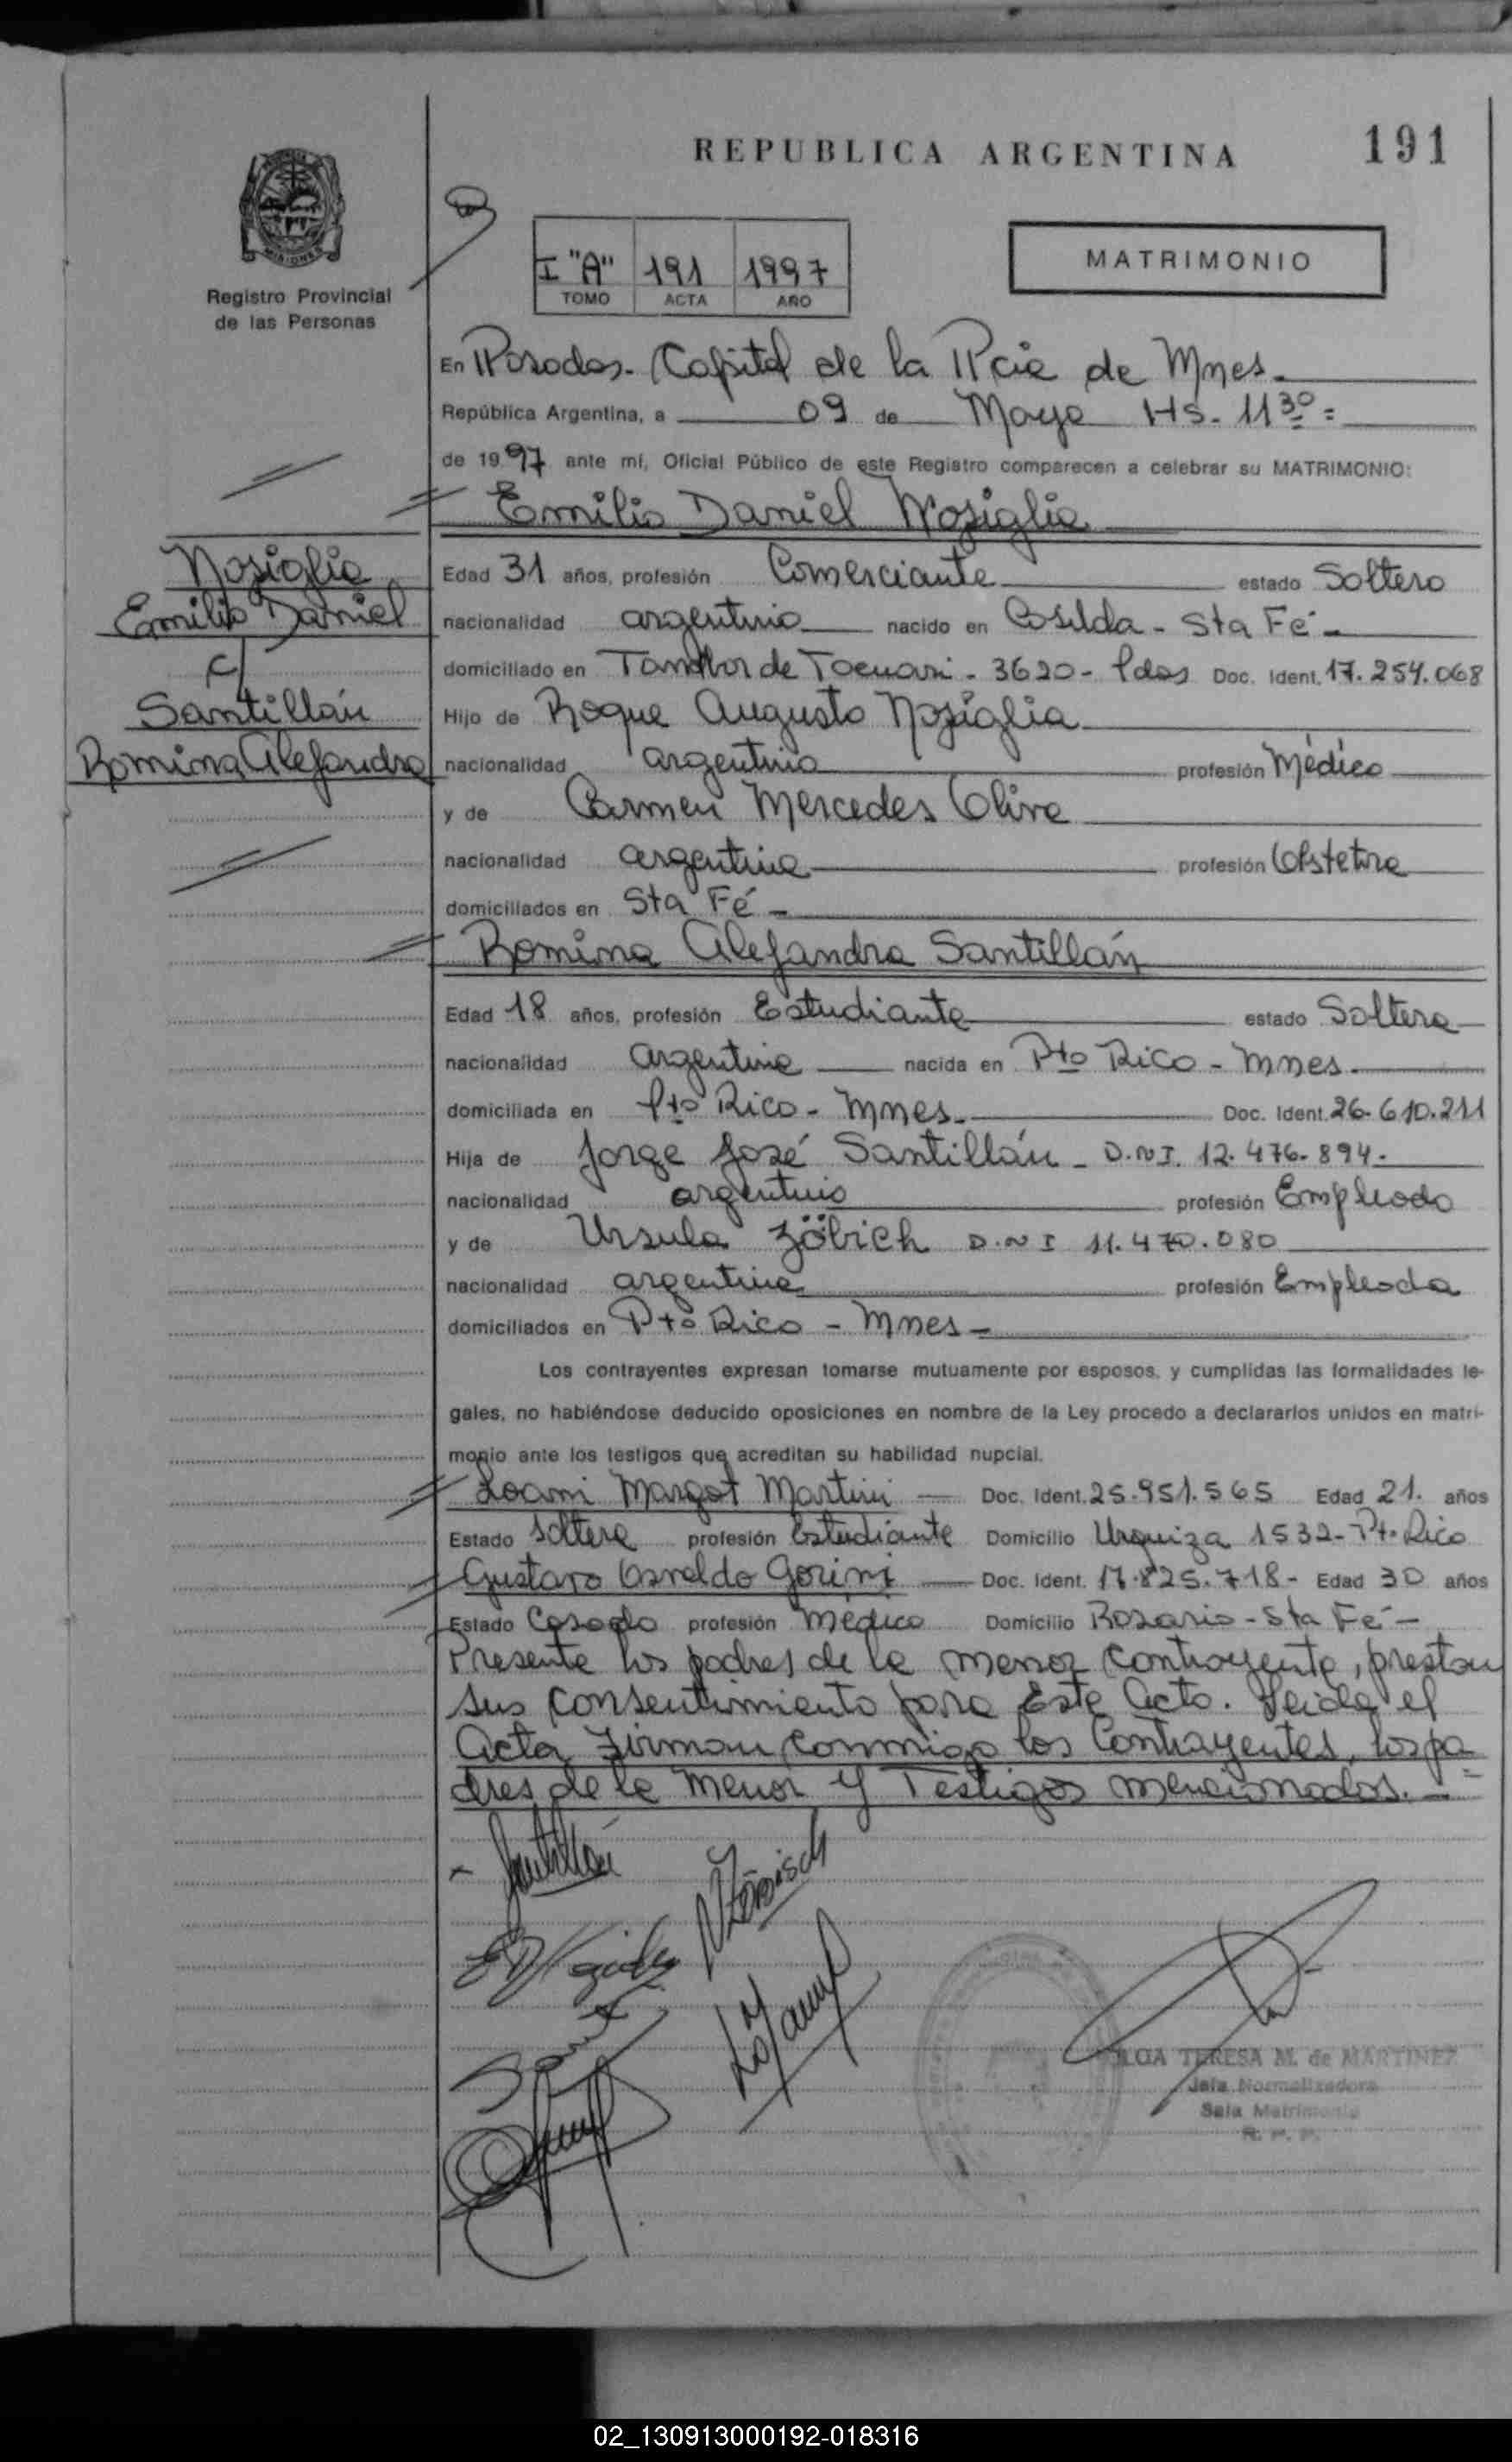 REPUBLICA ARGENTINA
191
MISIONES
Registro Provincial
de las Personas
I "A" 191 1997
TOMO ACTA AÑO
MATRIMONIO
En Posadas. Capital de la Pcia de Mnes.
República Argentina, a 09 de Mayo Hs. 11 30 =
de 1997 ante mí, Oficial Público de este Registro comparecen a celebrar su MATRIMONIO:
Emilio Daniel Nosiglia
Nosiglia
Emilio Daniel
c/
Santillán
Romina Alejandra
Edad 31 años, profesión Comerciante estado Soltero
nacionalidad argentino nacido en Casilda - Sta Fé -
domiciliado en Tambor de Tacuari - 3620 - Pdas Doc. Ident. 17.254.068
Hijo de Roque Augusto Nosiglia
nacionalidad argentino profesión Médico
y de Carmen Mercedes Oliva
nacionalidad argentina profesión Obstetra
domiciliados en Sta Fé -
Romina Alejandra Santillán
Edad 18 años, profesión Estudiante estado Soltera
nacionalidad argentina nacida en Pto Rico - Mnes.
domiciliada en Pto Rico - Mnes. Doc. Ident. 26.610.211
Hija de Jorge José Santillán - D.N.I. 12.476.894.
nacionalidad argentino profesión Empleado
y de Ursula Zöbich D.N.I 11.470.080
nacionalidad argentina profesión Empleada
domiciliados en Pto Rico - Mnes -
Los contrayentes expresan tomarse mutuamente por esposos, y cumplidas las formalidades le-
gales, no habiéndose deducido oposiciones en nombre de la Ley procedo a declararlos unidos en matri-
monio ante los testigos que acreditan su habilidad nupcial.
Loami Margot Martini Doc. Ident. 25.951.565 Edad 21. años
Estado Soltera profesión Estudiante Domicilio Urquiza 1532 - Pto. Rico
Gustavo Osvaldo Gorini Doc. Ident. 17.825.718 - Edad 30 años
Estado Casado profesión Médico Domicilio Rosario - Sta Fé -
Presente los padres de la menor contrayente, prestan
sus consentimiento para Este Acto. Leida el
Acta Firman conmigo los Contrayentes, los pa
dres de la menor y Testigos mencionados. =
Santillán
TERESA M. de MARTINEZ
Jefa Normalizadora
Sala Matrimonio
R. P. P.
02_130913000192-018316